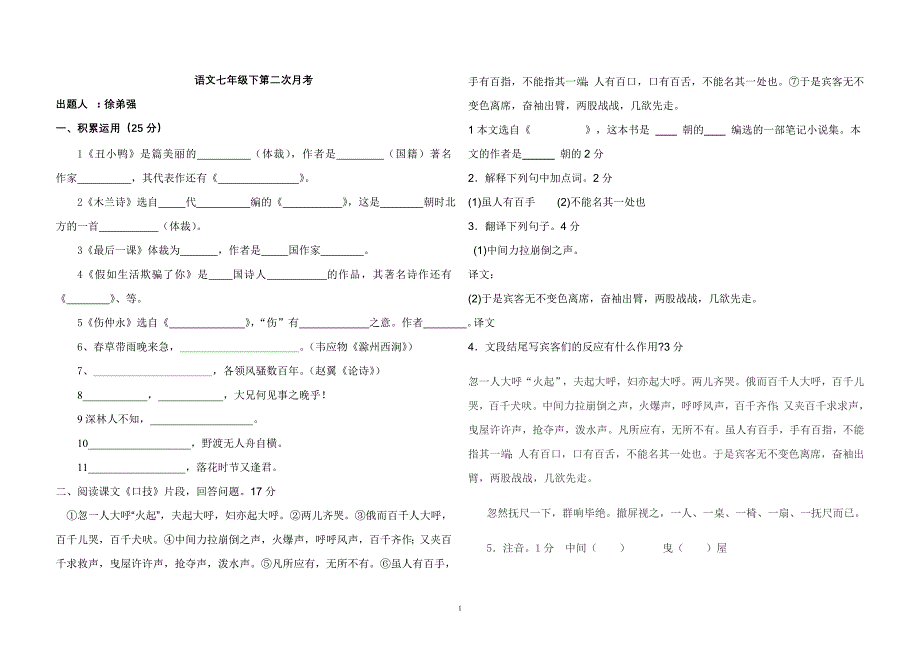 语文七年级下第二次月考
出题人 ：徐弟强
一、积累运用（25分）
1《丑小鸭》是篇美丽的__________（体裁），作者是_________（国籍）著名
作家__________，其代表作还有《_______________》。
2《木兰诗》选自_____代__________编的《___________》，这是________朝时北
方的一首___________（体裁）。
3《最后一课》体裁为_______，作者是_____国作家________。
4《假如生活欺骗了你》是____国诗人___________的作品，其著名诗作还有
《________》、等。
5《伤仲永》选自《______________》，“伤”有_____________之意。作者________。
6、春草带雨晚来急，___________________________。（韦应物《滁州西涧》）
7、______________________，各领风骚数百年。（赵翼《论诗》）
8____________，____________，大兄何见事之晚乎！
9深林人不知，___________________。
10___________________，野渡无人舟自横。
11__________________，落花时节又逢君。
二、阅读课文《口技》片段，回答问题。17分
①忽一人大呼“火起”，夫起大呼，妇亦起大呼。②两儿齐哭。③俄而百千人大呼，
百千儿哭，百千犬吠。④中间力拉崩倒之声，火爆声，呼呼风声，百千齐作；又夹百
千求救声，曳屋许许声，抢夺声，泼水声。⑤凡所应有，无所不有。⑥虽人有百手，
手有百指，不能指其一端；人有百口，口有百舌，不能名其一处也。⑦于是宾客无不
变色离席，奋袖出臂，两股战战，几欲先走。
1本文选自《          》，这本书是 ____ 朝的____ 编选的一部笔记小说集。本
文的作者是______ 朝的2分
2．解释下列句中加点词。2分
(1)虽人有百手    (2)不能名其一处也
3．翻译下列句子。4分
(1)中间力拉崩倒之声。
译文：
(2)于是宾客无不变色离席，奋袖出臂，两股战战，几欲先走。
译文
4．文段结尾写宾客们的反应有什么作用?3分
忽一人大呼“火起”，夫起大呼，妇亦起大呼。两儿齐哭。俄而百千人大呼，百千儿
哭，百千犬吠。中间力拉崩倒之声，火爆声，呼呼风声，百千齐作；又夹百千求求声，
曳屋许许声，抢夺声，泼水声。凡所应有，无所不有。虽人有百手，手有百指，不能
指其一端；人有百口，口有百舌，不能名其一处也。于是宾客无不变色离席，奋袖出
臂，两股战战，几欲先走。
忽然抚尺一下，群响毕绝。撤屏视之，一人、一桌、一椅、一扇、一抚尺而已。
5．注音。1分  中间（    ）      曳（    ）屋
1